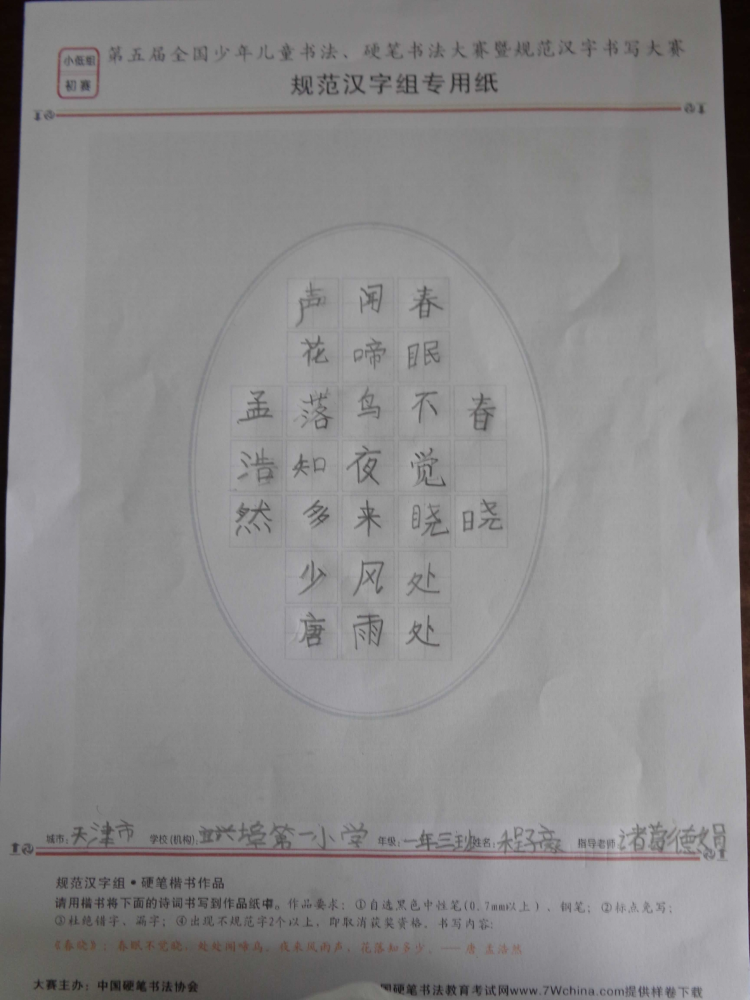 小低组
初赛
第五届全国少年儿童书法、硬笔书法大赛暨规范汉字书写大赛
规范汉字组专用纸
春晓
春眠不觉晓处处
闻啼鸟夜来风雨
声花落知多少唐
孟浩然
城市: 天津市 学校(机构): 宜兴埠第一小学 年级: 一年三班 姓名: 程子豪 指导老师:
规范汉字组·硬笔楷书作品
请用楷书将下面的诗词书写到作品纸中。作品要求：①自选黑色中性笔(0.7mm以上)、钢笔；②标点免写；
③杜绝错字、漏字；④出现不规范字2个以上，即取消获奖资格。书写内容：
《春晓》：春眠不觉晓，处处闻啼鸟。夜来风雨声，花落知多少。——唐 孟浩然
大赛主办：中国硬笔书法协会 国硬笔书法教育考试网www.7Wchina.com提供样卷下载